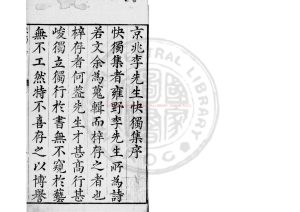 京兆李先生快獨集序
快獨集者雍野李先生所為詩
若文余為蒐輯而梓存之者也
梓存者何葢先生才甚高行甚
峻獨立獨行於書無不窺於藝
無不工然特不喜存之以博譽